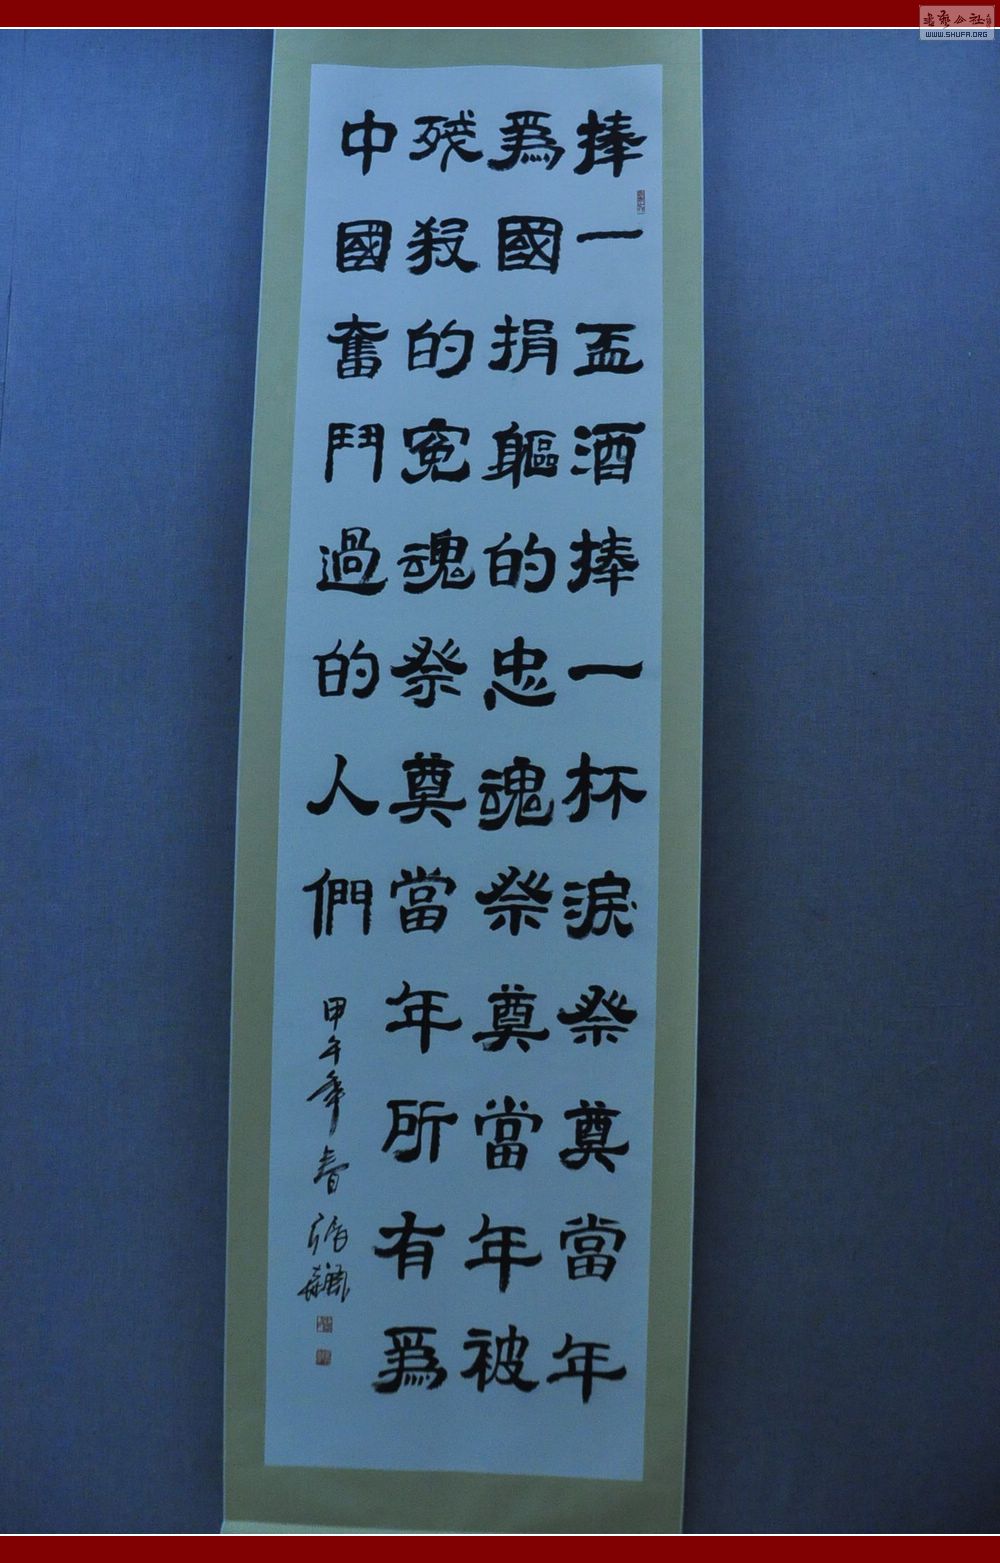 捧一盃酒捧一杯淚祭奠當年
爲國捐軀的忠魂祭奠當年被
殘殺的冤魂祭奠當年所有爲
中國奮鬥過的人們
甲午年春
书艺公社
WWW.SHUFA.ORG